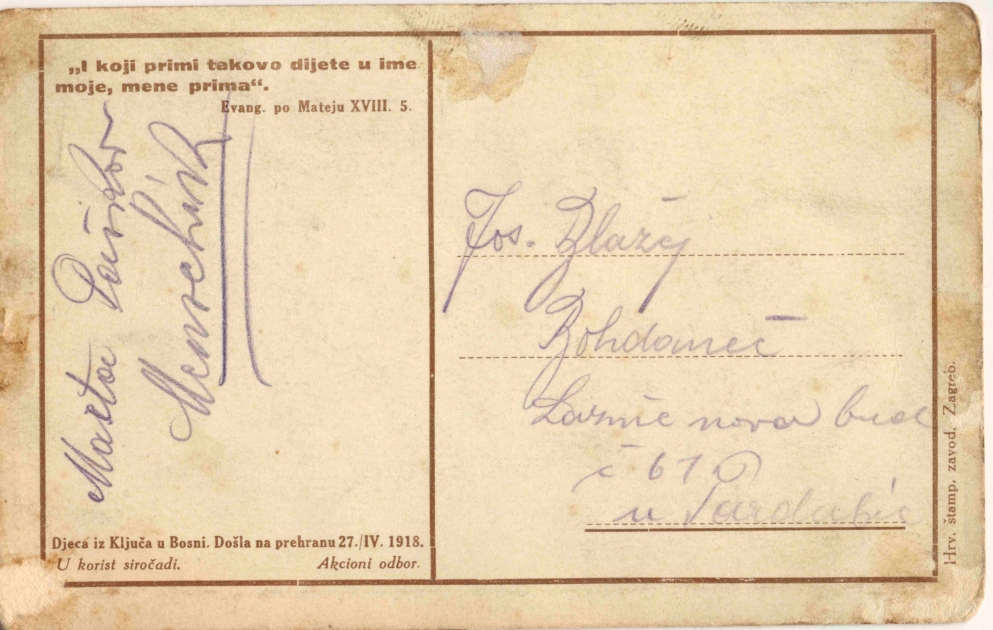 „I koji primi takovo dijete u ime
moje, mene prima“.
Evang. po Mateju XVIII. 5.
Marta
Jos. Blažej
Bohdaneč
Laznie nova
č 61
u Pardubic
Djeca iz Ključa u Bosni. Došla na prehranu 27./IV. 1918.
U korist siročadi. Akcioni odbor.
Hrv. štamp. zavod, Zagreb.